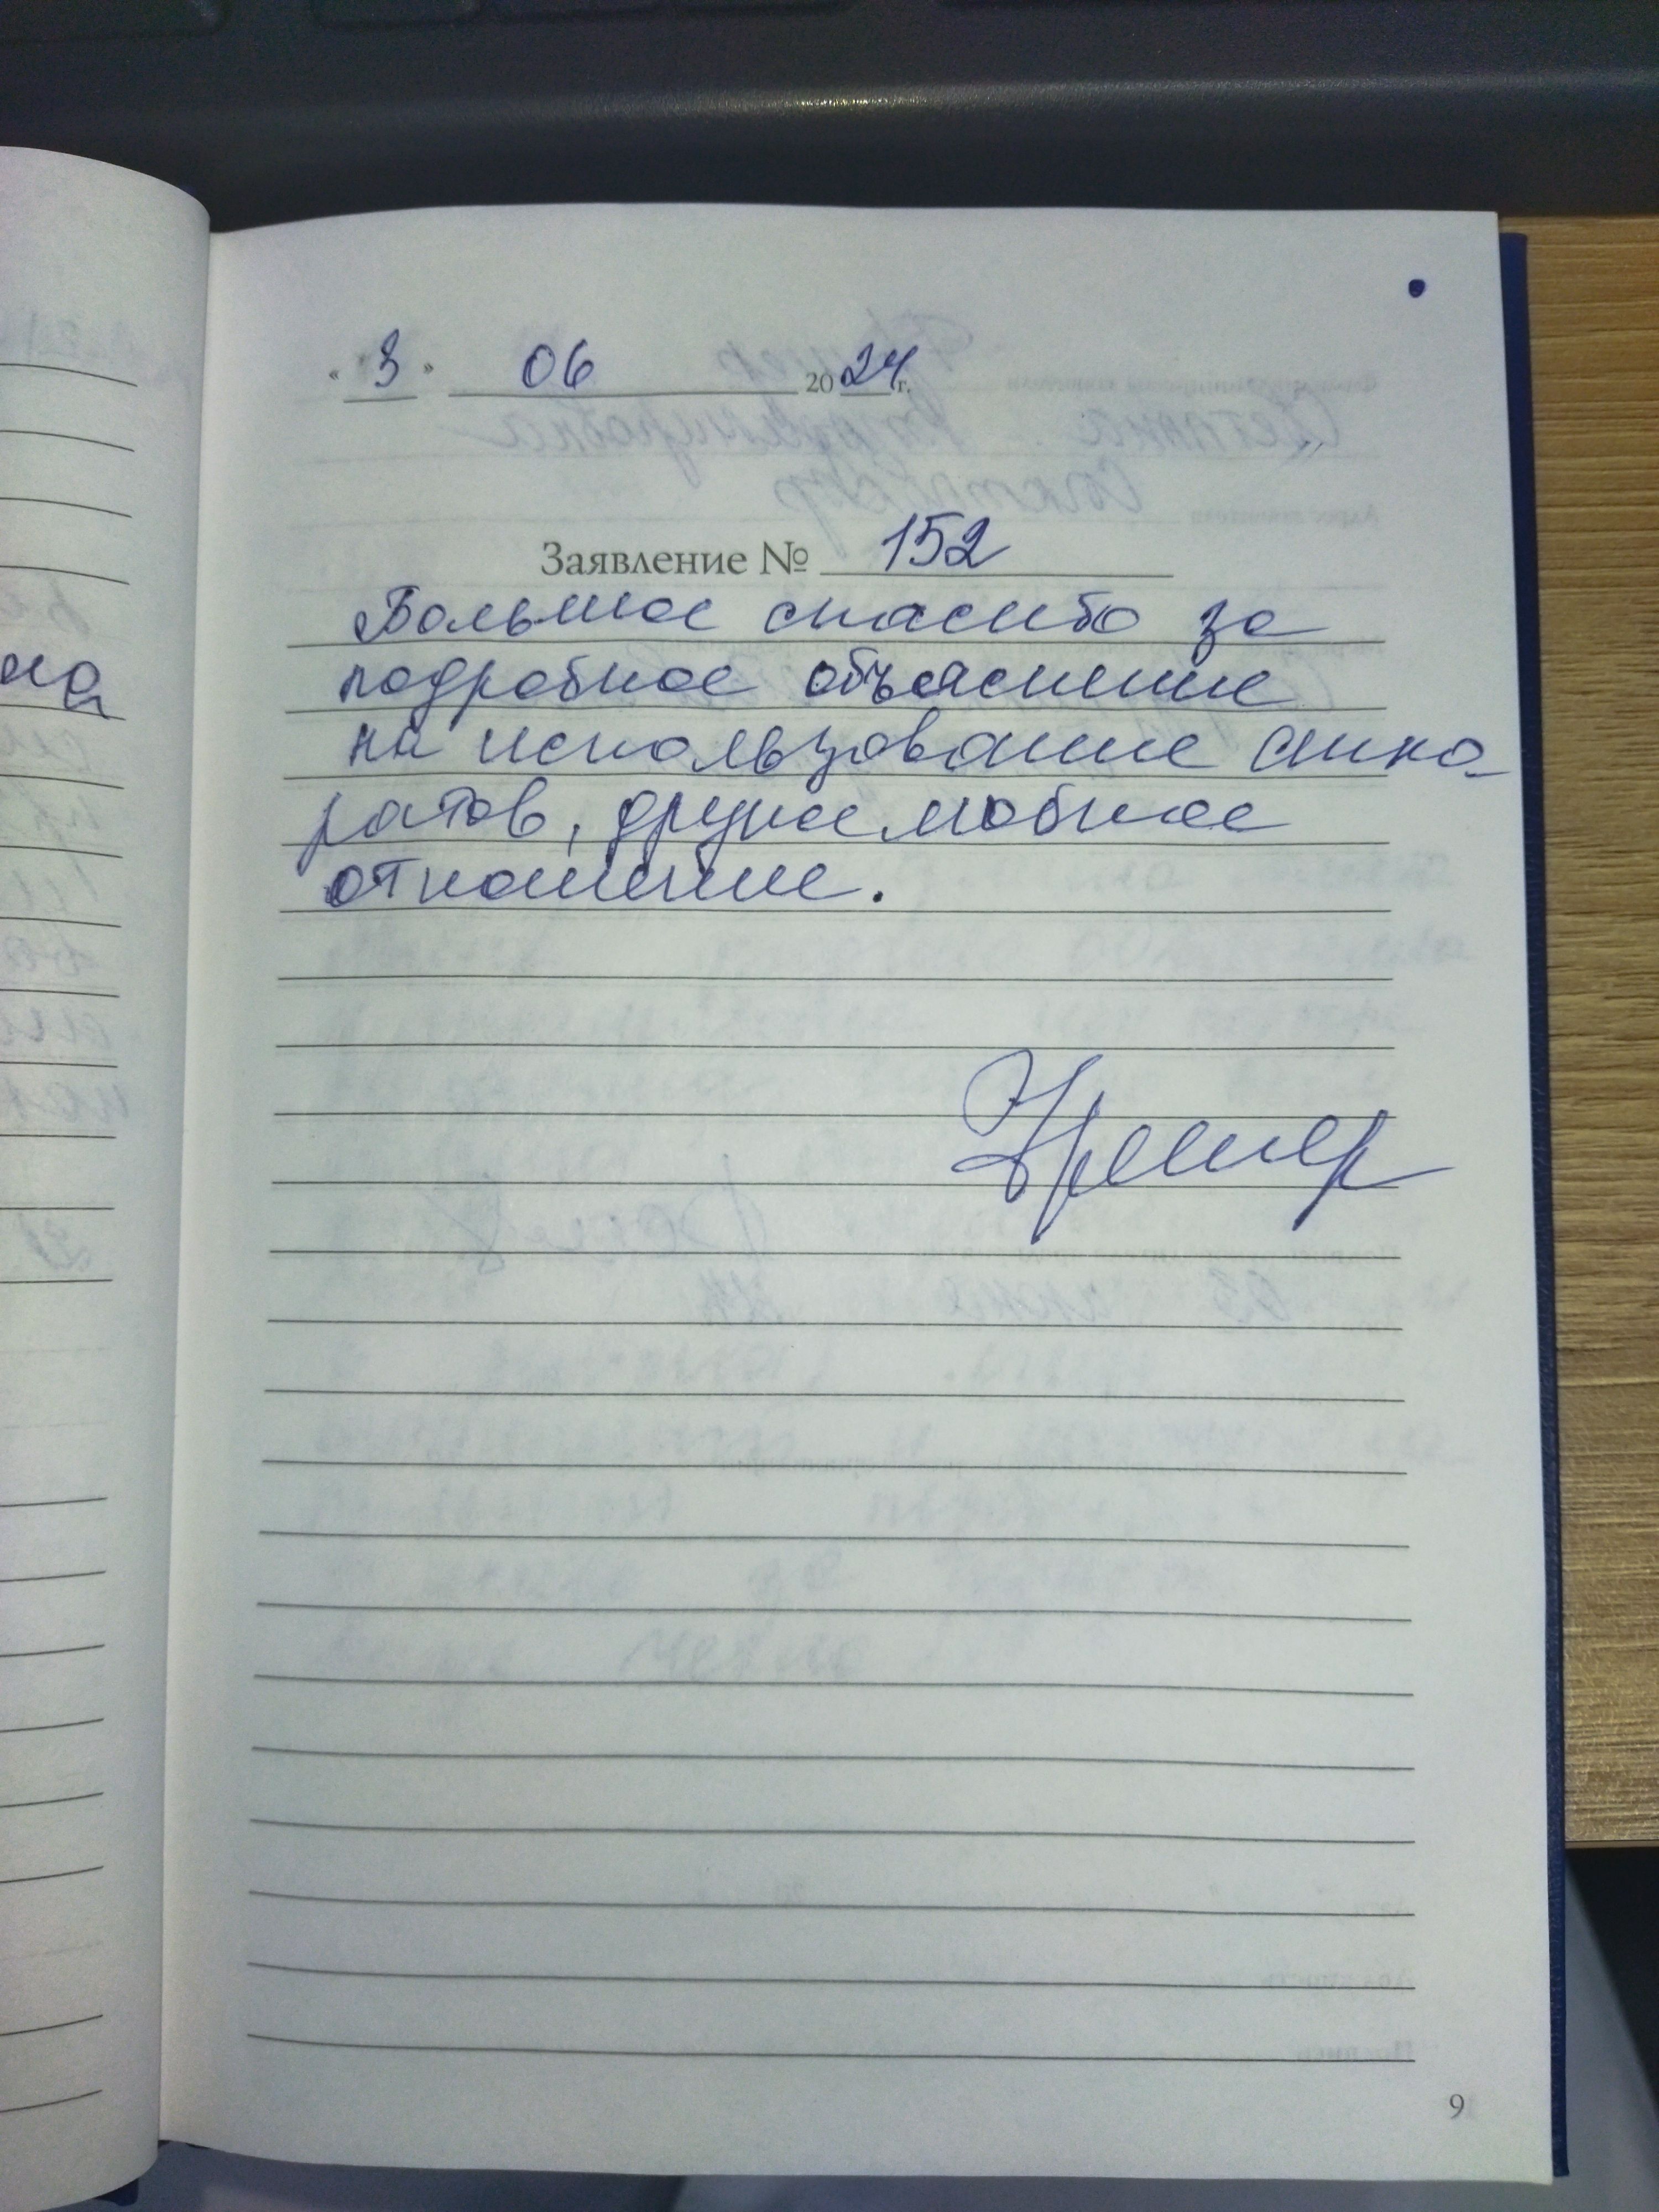 « 3 » 06 2024 г.
Заявление № 152
Большое спасибо за
подробное объяснение
на использование аппа-
ратов, дружелюбное
отношение.
9